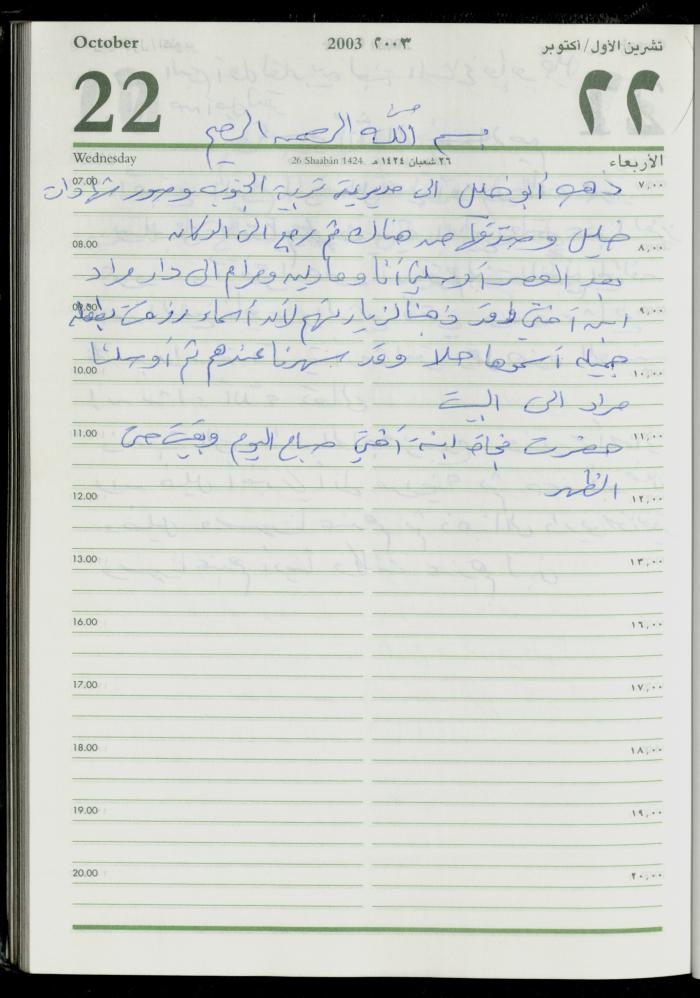 October 2003 ٢٠٠٣ تشرين الأول/أكتوبر
22 ٢٢
بسم الله الرحمن الرحيم
Wednesday 26 Shaabán 1424 ٢٦ شعبان ١٤٢٤ هـ الأربعاء
07.00 ٧,٠٠
ذهب أبو خليل الى مديرية تربية الجنوب وصور شهادات
خليل وصدقها من هناك ثم رجع الى الدكان
08.00 ٨,٠٠
بعد العصر أوصلني أنا ومادلين ومرام الى دار مراد
09.00 ٩,٠٠
ابن أختي وقد ذهبنا لزيارتهم لأن أسماء رزقت بطفلة
جميلة أسموها حلا وقد سهرنا عندهم ثم أوصلنا
10.00 ١٠,٠٠
مراد الى البيت
11.00 ١١,٠٠
حضرت نجاة ابنة أختي صباح اليوم وبقيت حتى
الظهر
12.00 ١٢,٠٠
13.00 ١٣,٠٠
16.00 ١٦,٠٠
17.00 ١٧,٠٠
18.00 ١٨,٠٠
19.00 ١٩,٠٠
20.00 ٢٠,٠٠